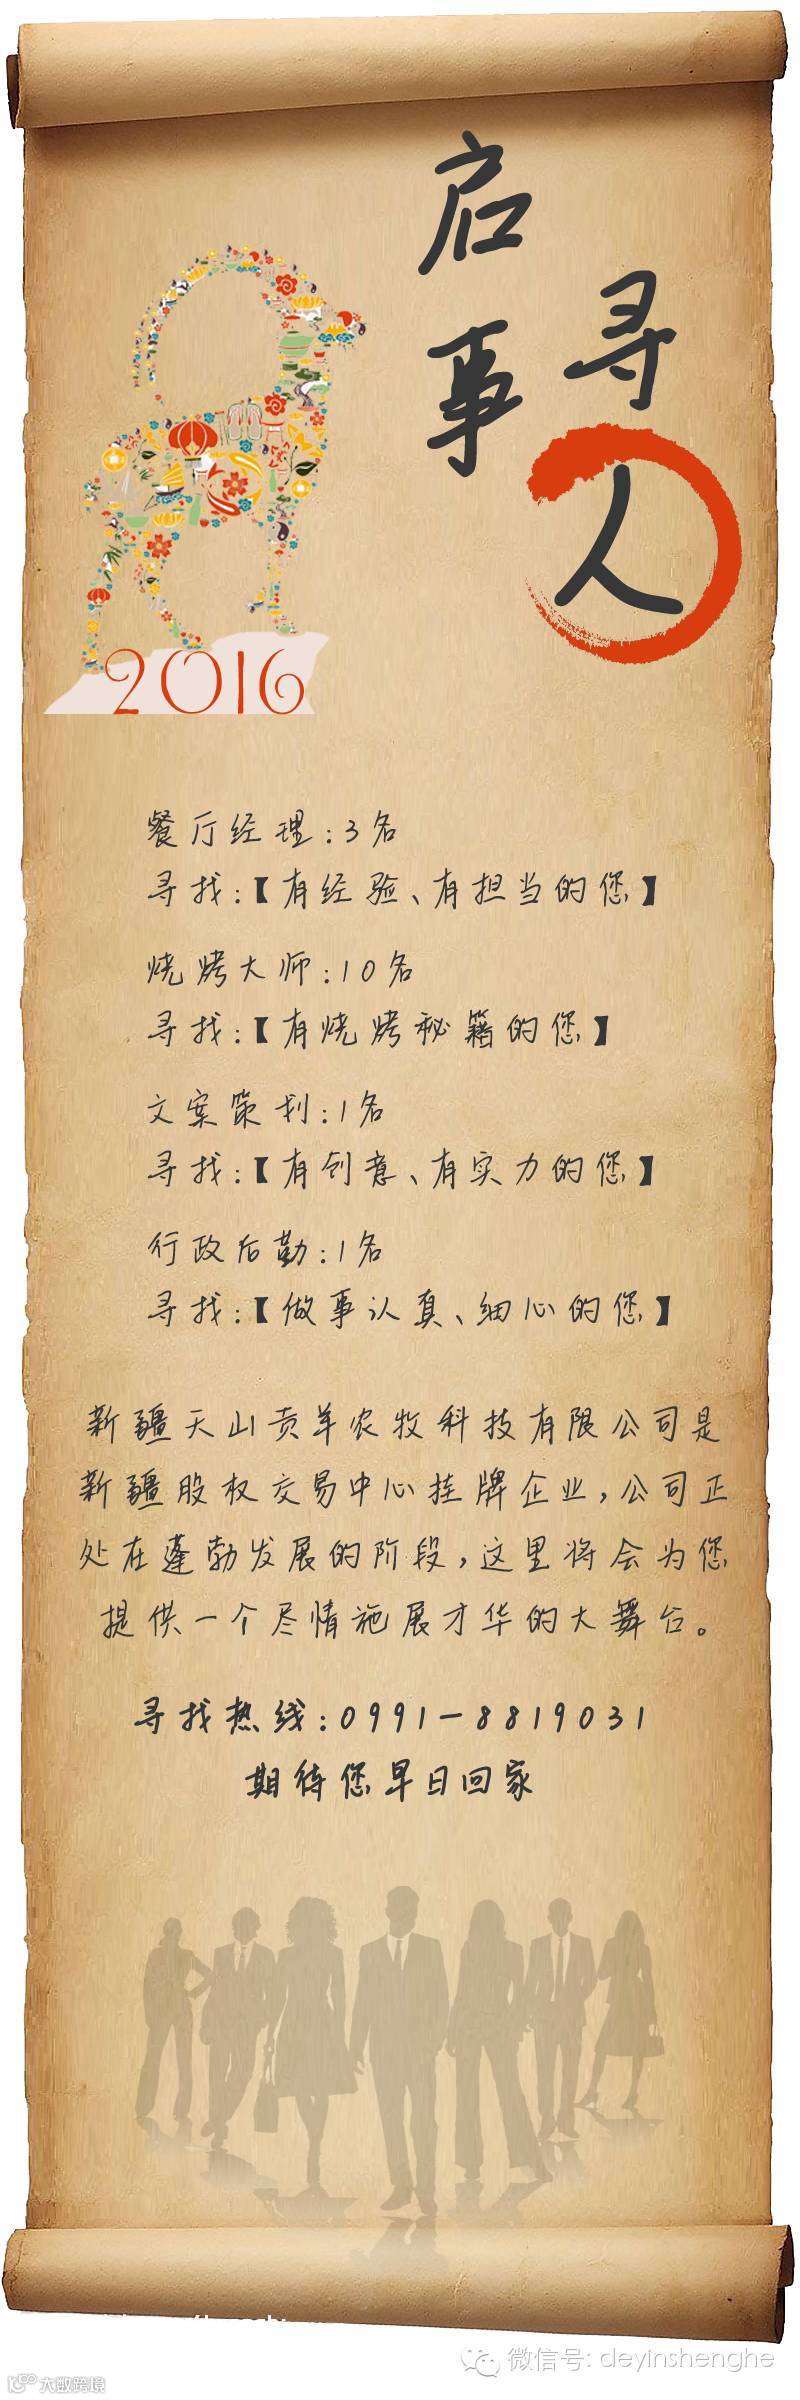 寻人
启事
2016
餐厅经理:3名
寻找:【有经验、有担当的您】
烧烤大师:10名
寻找:【有烧烤秘籍的您】
文案策划:1名
寻找:【有创意、有实力的您】
行政后勤:1名
寻找:【做事认真、细心的您】
新疆天山贡羊农牧科技有限公司是
新疆股权交易中心挂牌企业,公司正
处在蓬勃发展的阶段,这里将会为您
提供一个尽情施展才华的大舞台。
寻找热线:0991-8819031
期待您早日回家
微信号: deyinshenghe
大数跨境